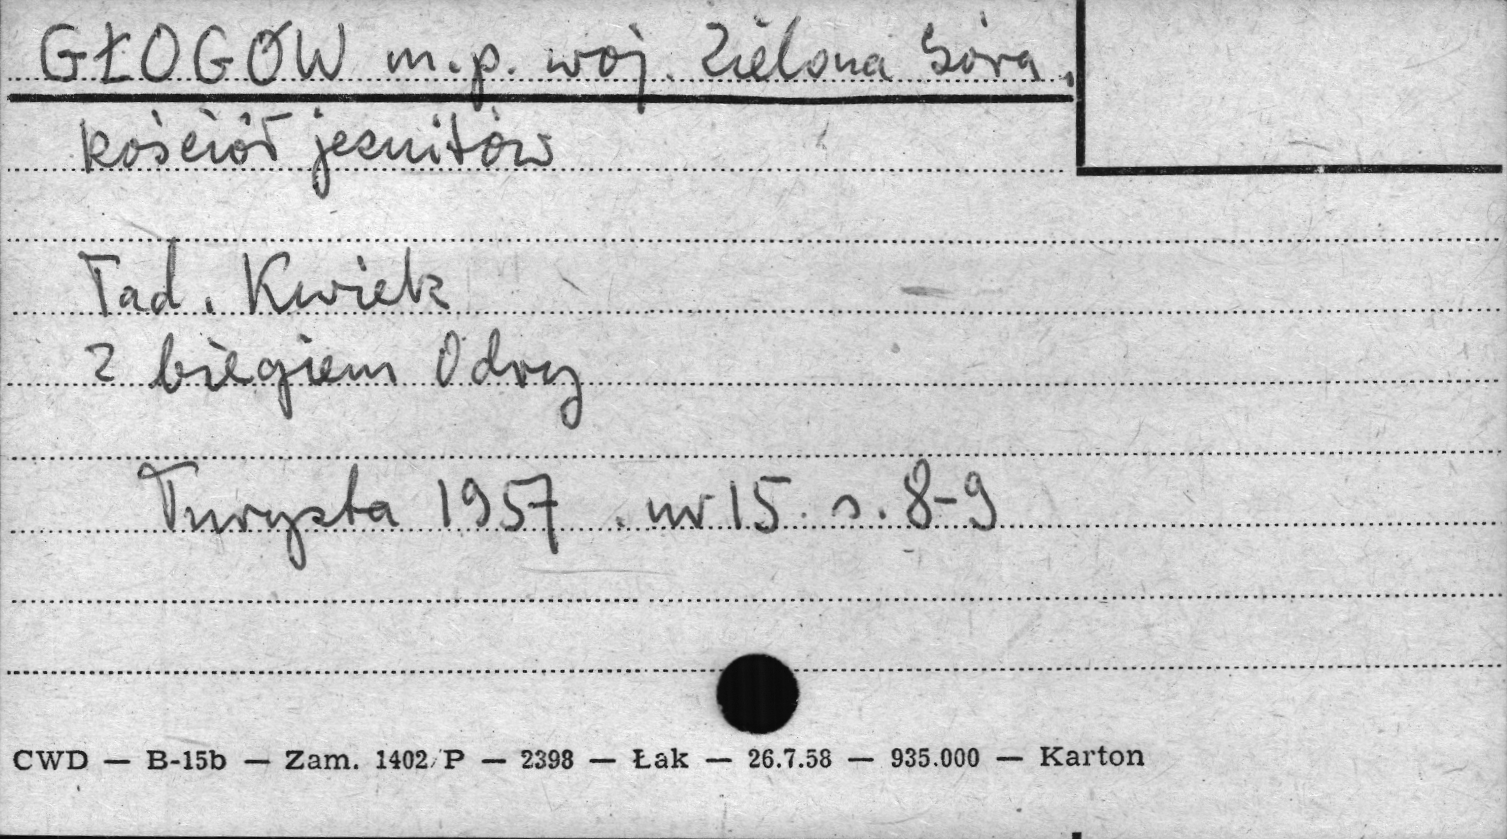 GŁOGÓW m.p. woj. Zielona Góra.
kościół jezuitów
Tad. Kwiek
Z biegiem Odry
Turysta 1957 . nr 15. s. 8-9
CWD — B-15b — Zam. 1402/P — 2398 — Łak — 26.7.58 — 935.000 — Karton